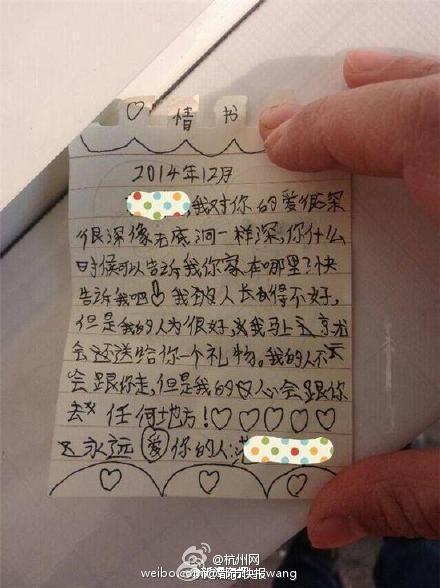 ♡ 情 书
2014年12月
,我对你的爱很深
很深像无底洞一样深,你什么
时候可以告诉我你家在哪里?快
告诉我吧!我的人长得不好,
但是我的人为很好,我马上
会还送给你一个礼物。我的人不
会跟你走,但是我的心会跟你
去 任何地方!♡♡♡♡♡
永远爱你的人:
杭州网
weibo.com/ wang
@都市快报